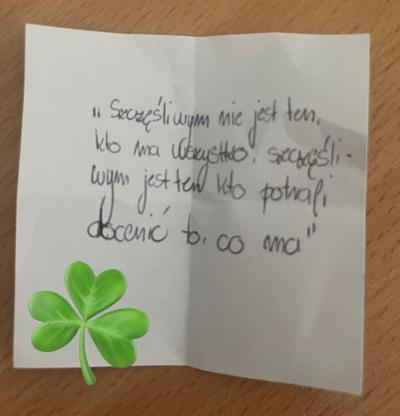 "Szczęśliwym nie jest ten,
kto ma wszystko, szczęśli-
wym jest ten kto potrafi
docenić to, co ma"